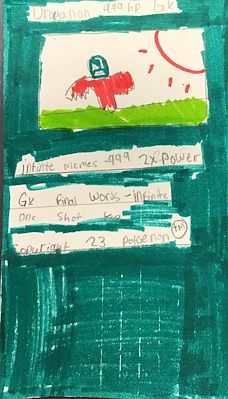 999 HP GK
infinite memes -999 2x power
GK final words - infinite
one shot
Copyright 23 pokemon TM